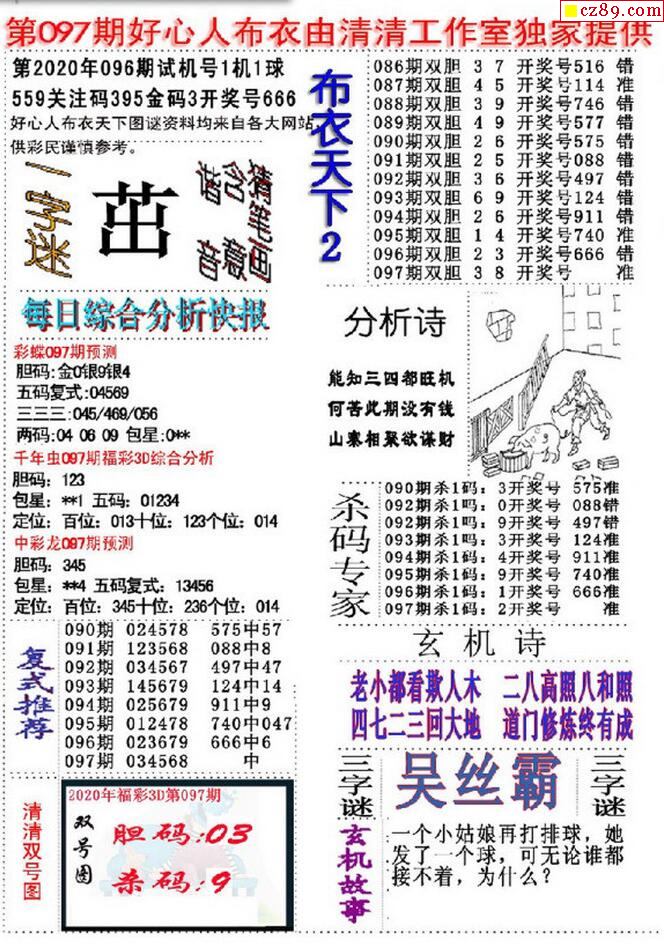 cz89.com
第097期好心人布衣由清清工作室独家提供
第2020年096期试机号1机1球
559关注码395金码3开奖号666
好心人布衣天下图谜资料均来自各大网站,
供彩民谨慎参考。
一字迷
茁
谐音
含意
猜笔画
布衣天下2
086期双胆 3 7 开奖号516 错
087期双胆 4 5 开奖号114 准
088期双胆 3 9 开奖号746 错
089期双胆 4 9 开奖号577 错
090期双胆 2 6 开奖号575 错
091期双胆 2 5 开奖号088 错
092期双胆 3 6 开奖号497 错
093期双胆 6 9 开奖号124 错
094期双胆 2 6 开奖号911 错
095期双胆 1 4 开奖号740 准
096期双胆 2 3 开奖号666 错
097期双胆 3 8 开奖号 准
每日综合分析快报
彩蝶097期预测
胆码:金0银9银4
五码复式:04569
三三三:045/469/056
两码:04 06 09 包星:0**
千年虫097期福彩3D综合分析
胆码: 123
包星: **1 五码: 01234
定位: 百位: 013十位: 123个位: 014
中彩龙097期预测
胆码: 345
包星: **4 五码复式: 13456
定位: 百位: 345十位: 236个位: 014
分析诗
能知三四都旺机
何苦此期没有钱
山寨相聚欲谋财
杀码专家
090期杀1码: 3开奖号 575准
092期杀1吗: 0开奖号 088错
092期杀1吗: 9开奖号 497错
093期杀1吗: 3开奖号 124准
094期杀1码: 4开奖号 911准
095期杀1码: 9开奖号 740准
096期杀1码: 1开奖号 666准
097期杀1码: 2开奖号 准
复式推荐
090期 024578 575中57
091期 123568 088中8
092期 034567 497中47
093期 145679 124中14
094期 025679 911中9
095期 012478 740中047
096期 023679 666中6
097期 034568 中
玄机诗
老小都看欺人木 二八高照八和照
四七二三回大地 道门修炼终有成
三字谜
吴丝霸
三字谜
清清双号图
2020年福彩3D第097期
双号图
胆码:03
杀码:9
玄机故事
一个小姑娘再打排球,她
发了一个球,可无论谁都
接不着,为什么?